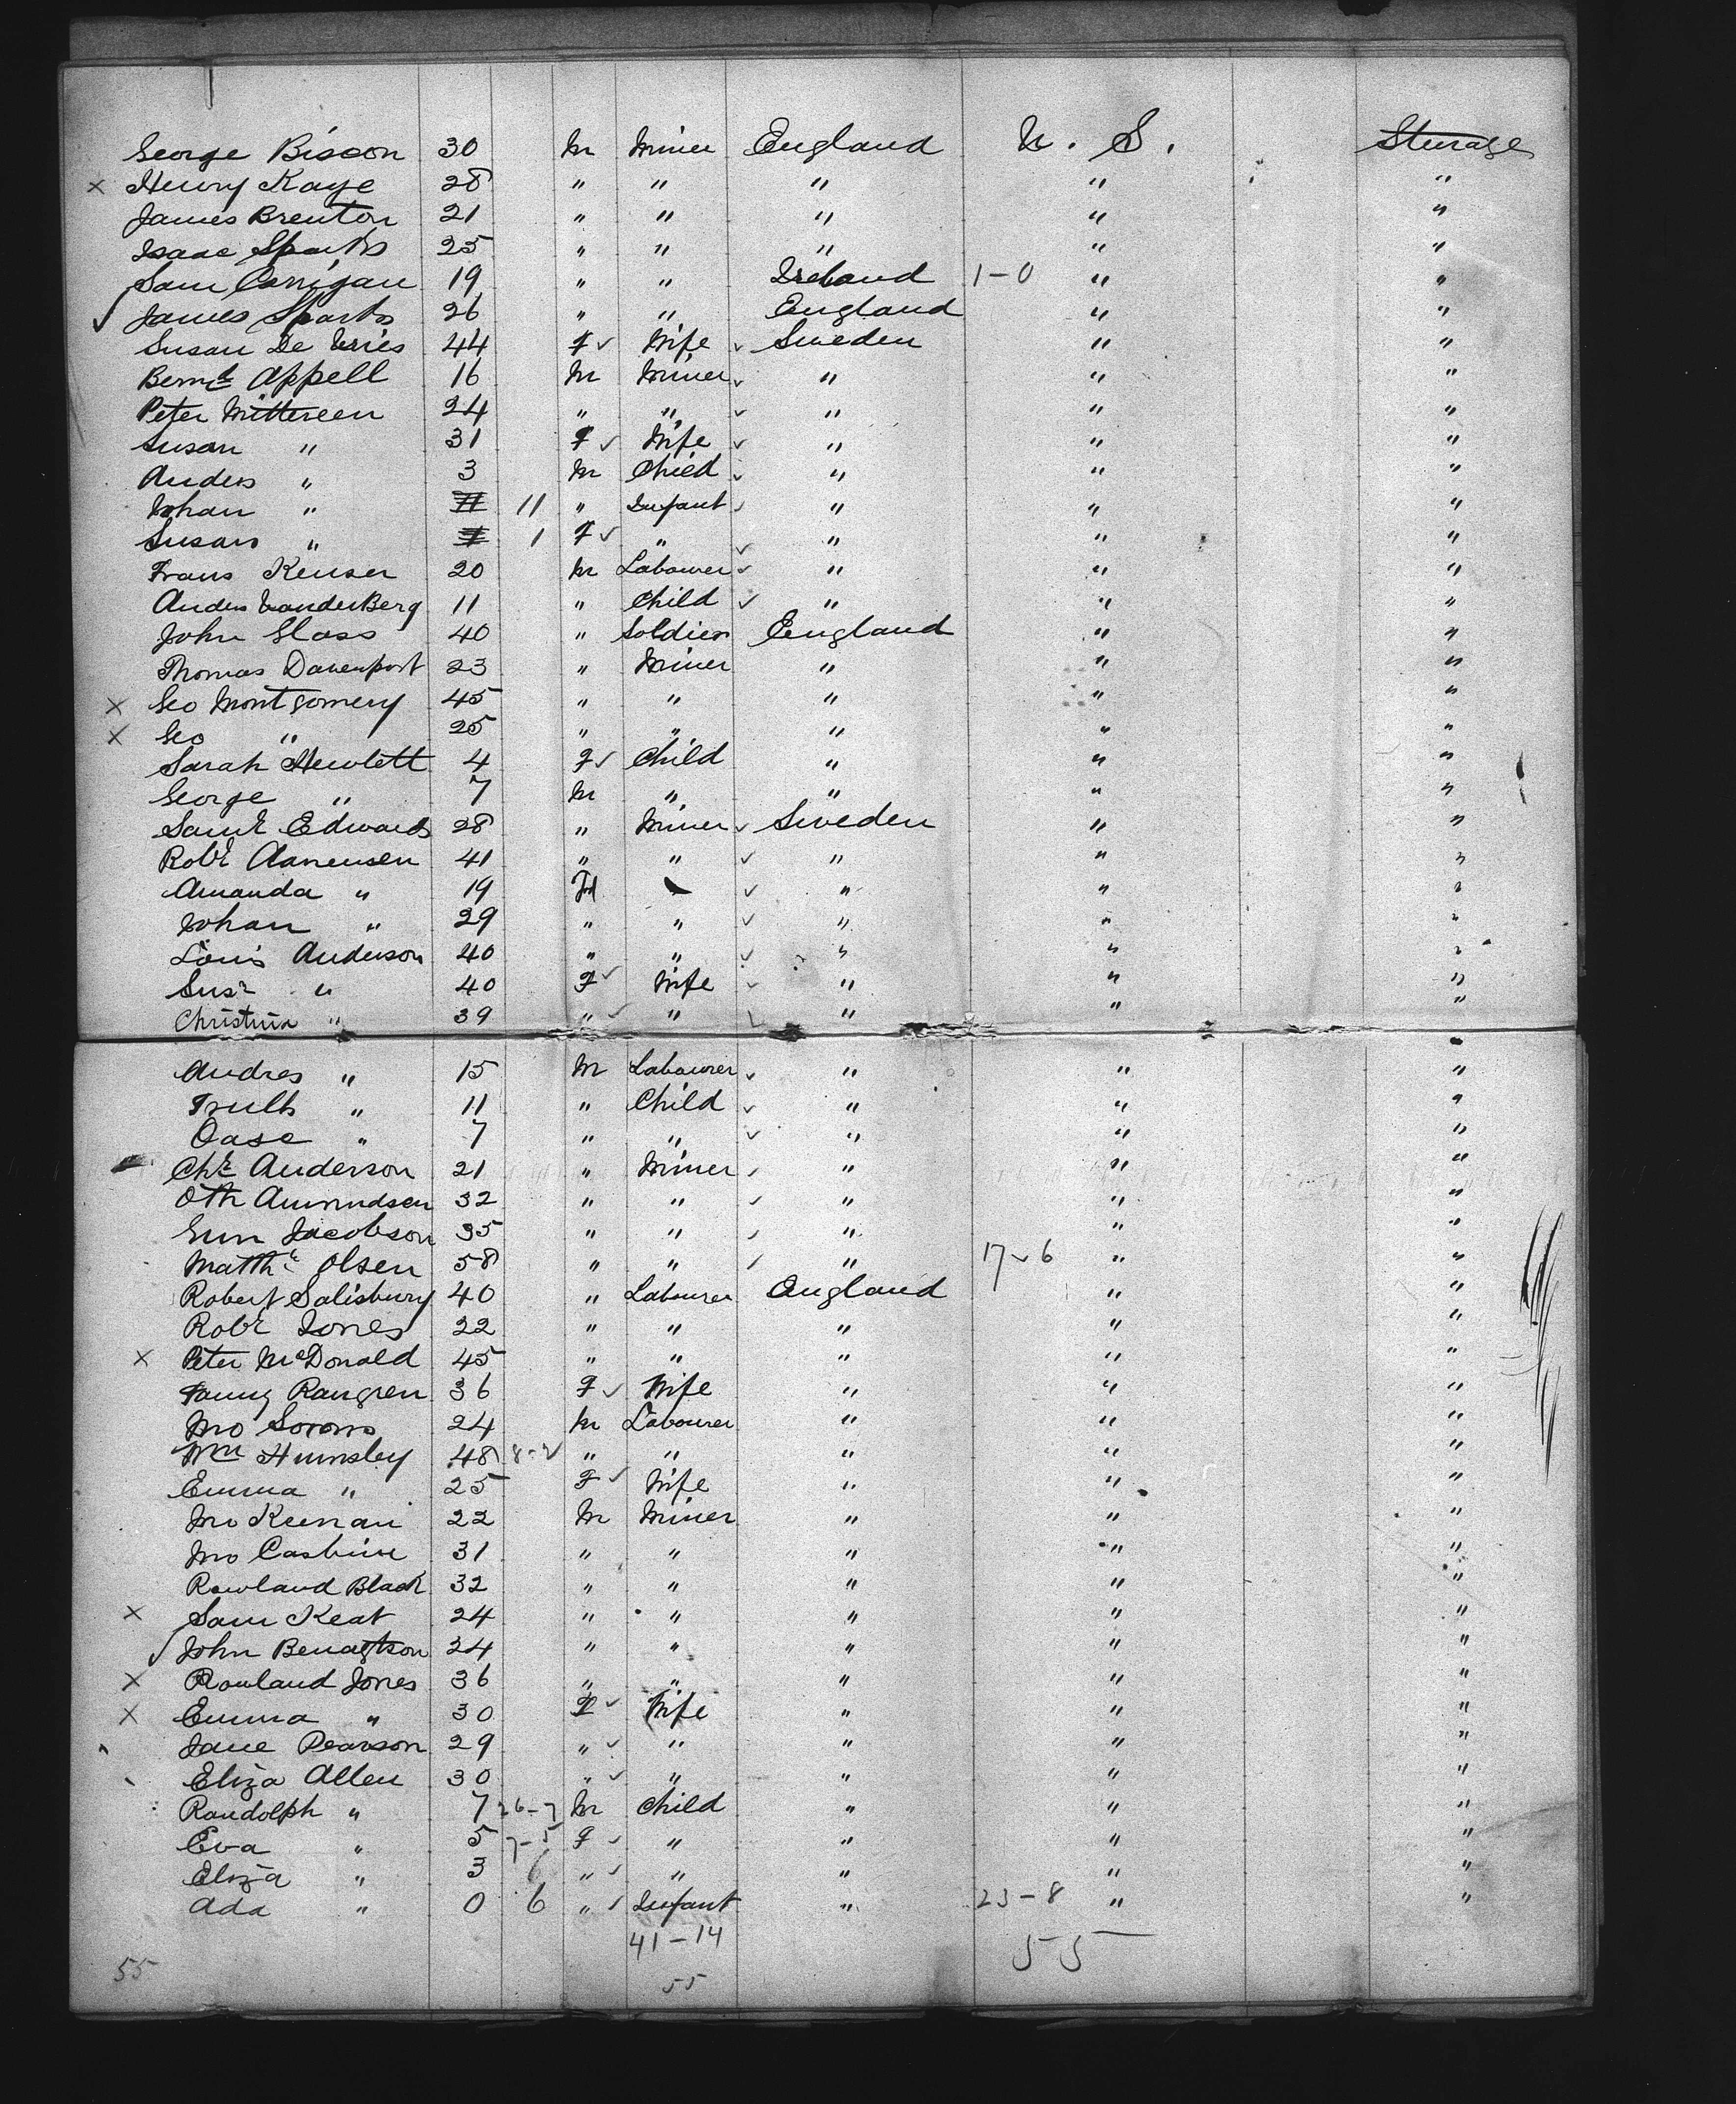 George Biscon 30 M Miner England U. S. Sturage
x Henry Kaye 28 " " " " "
James Brenton 21 " " " " "
Isaac Sparks 25 " " " " "
Sam Corrigan 19 " " Ireland 1-0 " "
✓ James Sparks 26 " " England " "
Susan De Vries 44 F ✓ Wife ✓ Sweden " "
Bernd Appell 16 M Miner ✓ " " "
Peter Mittereen 24 " " ✓ " " "
Susan " 31 F ✓ Wife ✓ " " "
Anders " 3 M Child ✓ " " "
Johan " 11 " Infant ✓ " " "
Susan " 1 F ✓ " ✓ " " "
Frans Keuser 20 M Labourer ✓ " " "
Anders VanderBerg 11 " Child ✓ " " "
John Glass 40 " Soldier England " "
Thomas Davenport 23 " Miner " " "
x Geo Montgomery 45 " " " " "
x Geo " 25 " " " " "
Sarah Hewlett 4 F ✓ Child " " "
George " 7 M " " " "
Saml Edwards 28 " Miner ✓ Sweden " "
Robt Aanensen 41 " " ✓ " " "
Amanda " 19 ✓ " " "
Johan " 29 " " ✓ " " "
Louis Anderson 40 " " ✓ " " "
Susn " 40 F ✓ Wife ✓ " " "
Christina " 39 " ✓ " ✓ " " "
Andres " 15 M Labourer ✓ " " "
Trulls " 11 " Child ✓ " " "
Oase " 7 " " ✓ " " "
Chr Anderson 21 " Miner ✓ " " "
Oth Amundsen 32 " " ✓ " " "
Gun Jacobson 35 " " ✓ " " "
Matths Olsen 58 " " ✓ " 17-6 " "
Robert Salisbury 40 " Labourer England " "
Robt Jones 22 " " " " "
x Peter McDonald 45 " " " " "
Fanny Rangren 36 F ✓ Wife " " "
Jno 24 M Labourer " " "
Wm Humsley 48 8-2 " " " " "
Emma " 25 F ✓ Wife " " "
Jno Keenan 22 M Miner " " "
Jno 31 " " " " "
Rowland Black 32 " " " " "
x Sam Keat 24 " " " " "
✓ John 24 " " " " "
x Rowland Jones 36 " " " " "
x Emma " 30 F ✓ Wife " " "
Jane Pearson 29 " ✓ " " " "
Eliza Allen 30 " ✓ " " " "
Randolph " 7 26-7 M Child " " "
Eva " 5 7-5 F ✓ " " " "
Eliza " 3 6 " ✓ " " " "
Ada " 0 6 " ✓ Infant " 23-8 " "
41-14
55
55
55